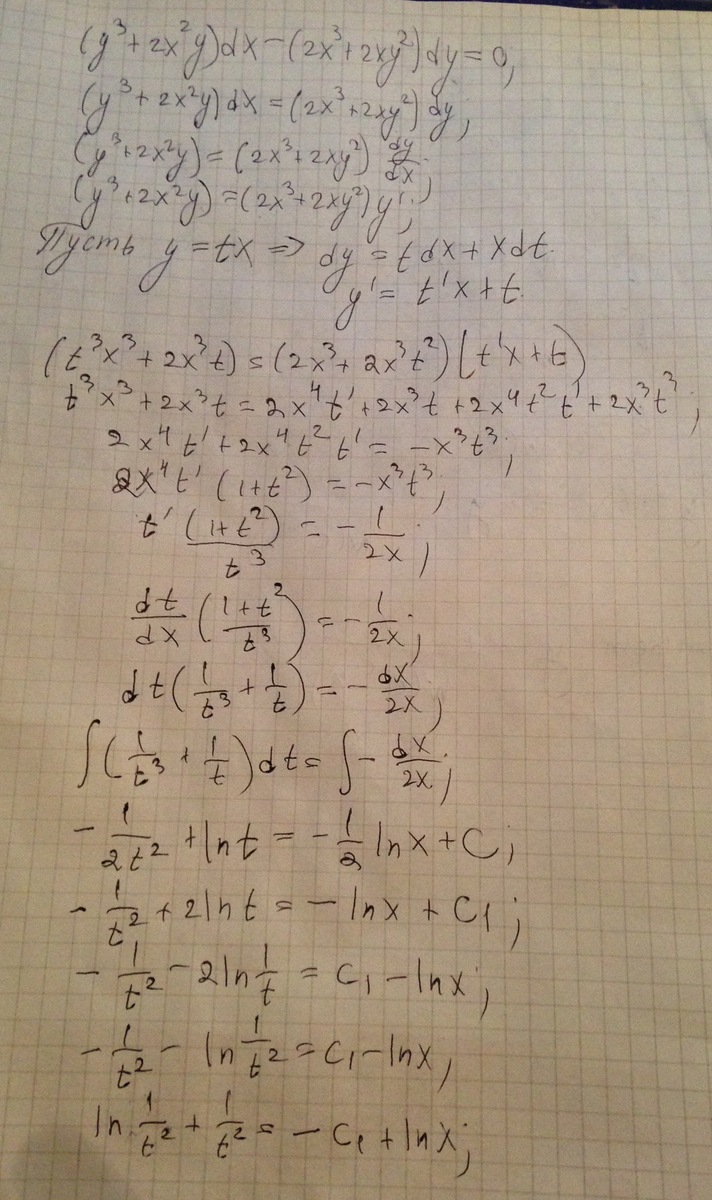 (y³+2x²y)dx-(2x³+2xy²)dy=0,
(y³+2x²y)dx=(2x³+2xy²)dy;
(y³+2x²y)=(2x³+2xy²) dy/dx;
(y³+2x²y)=(2x³+2xy²)y';
Пусть y=tx => dy=tdx+xdt.
y'= t'x+t.
(t³x³+2x³t)=(2x³+2x³t²)(t'x+t)
t³x³+2x³t=2x⁴t'+2x³t+2x⁴t²t'+2x³t³;
2x⁴t'+2x⁴t²t'= -x³t³;
2x⁴t'(1+t²)=-x³t³;
t' (1+t²)/t³ = - 1/2x;
dt/dx ((1+t²)/t³)=- 1/2x;
dt(1/t³+1/t)=- dx/2x;
∫(1/t³+1/t)dt=∫- dx/2x;
- 1/2t² +lnt=- 1/2 lnx+C;
- 1/t² +2lnt=-lnx+C1;
- 1/t² -2ln 1/t = C1-lnx;
- 1/t² - ln 1/t² =C1-lnx,
ln 1/t² + 1/t² = -C1+lnx;